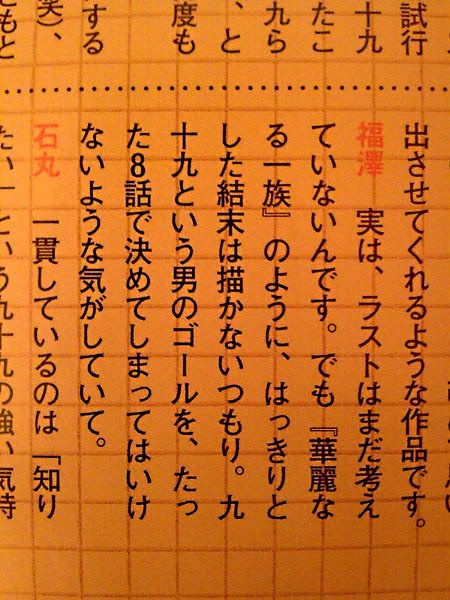 試行
十九
たこ
九ら
、と
度も
する
笑)、
もと
出させてくれるような作品です。
福澤 実は、ラストはまだ考え
ていないんです。でも『華麗な
る一族』のように、はっきりと
した結末は描かないつもり。九
十九という男のゴールを、たっ
た8話で決めてしまってはいけ
ないような気がしていて。
石丸 一貫しているのは「知り
たい」という九十九の強い気持